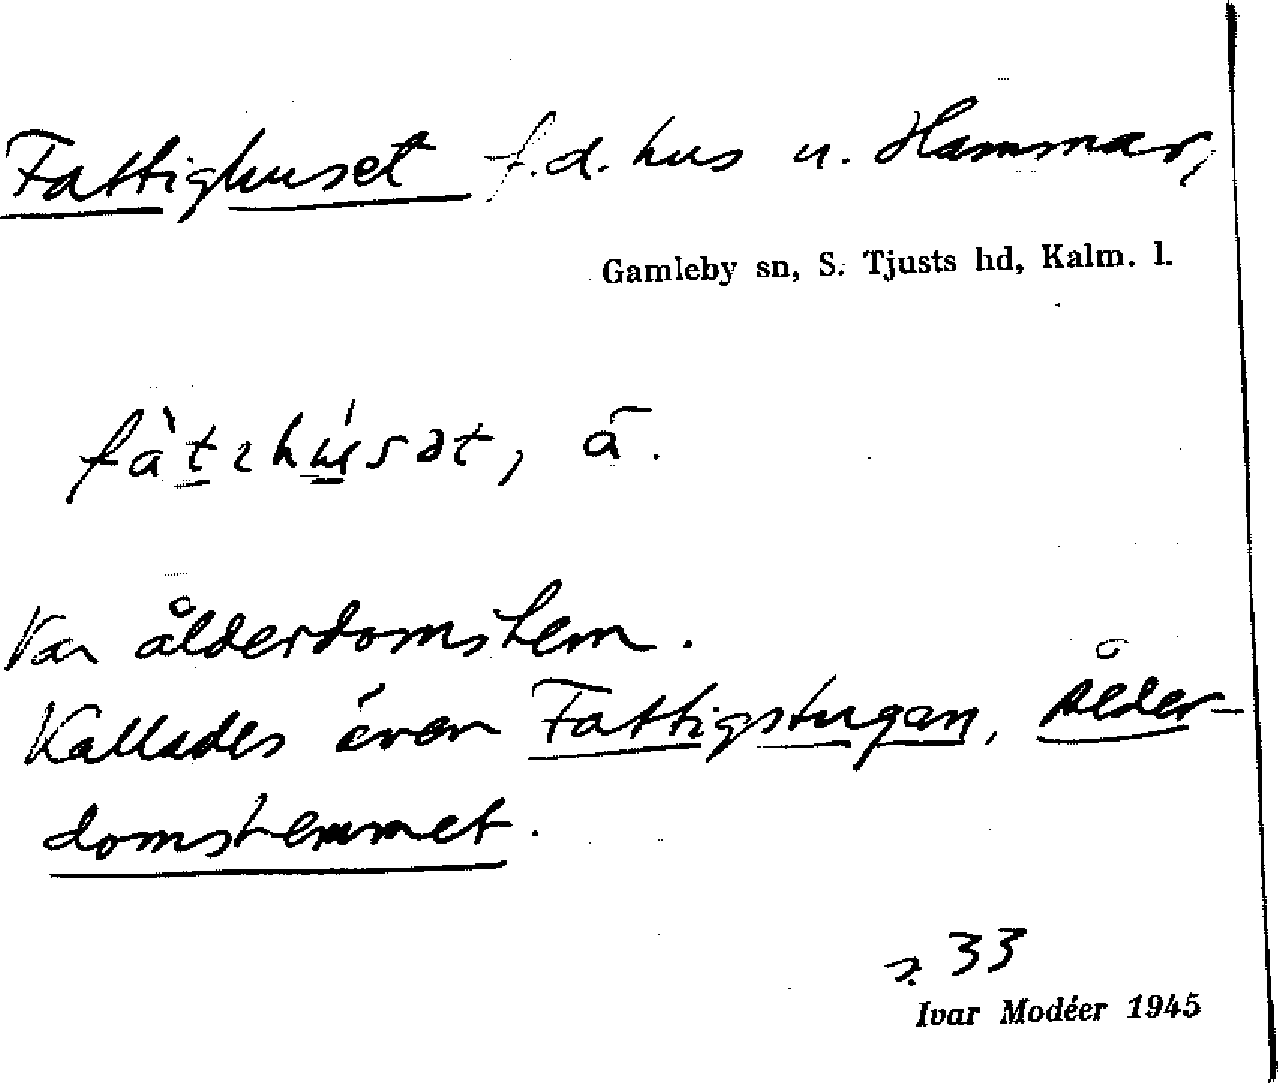 Fattighuset f.d. hus u. Hammar,
Gamleby sn, S. Tjusts hd, Kalm. l.
fàtɩhúsət, ā.
Var ålderdomshem.
Kallades även Fattigstugan, Ålder-
domshemmet.
s. 33
Ivar Modéer 1945